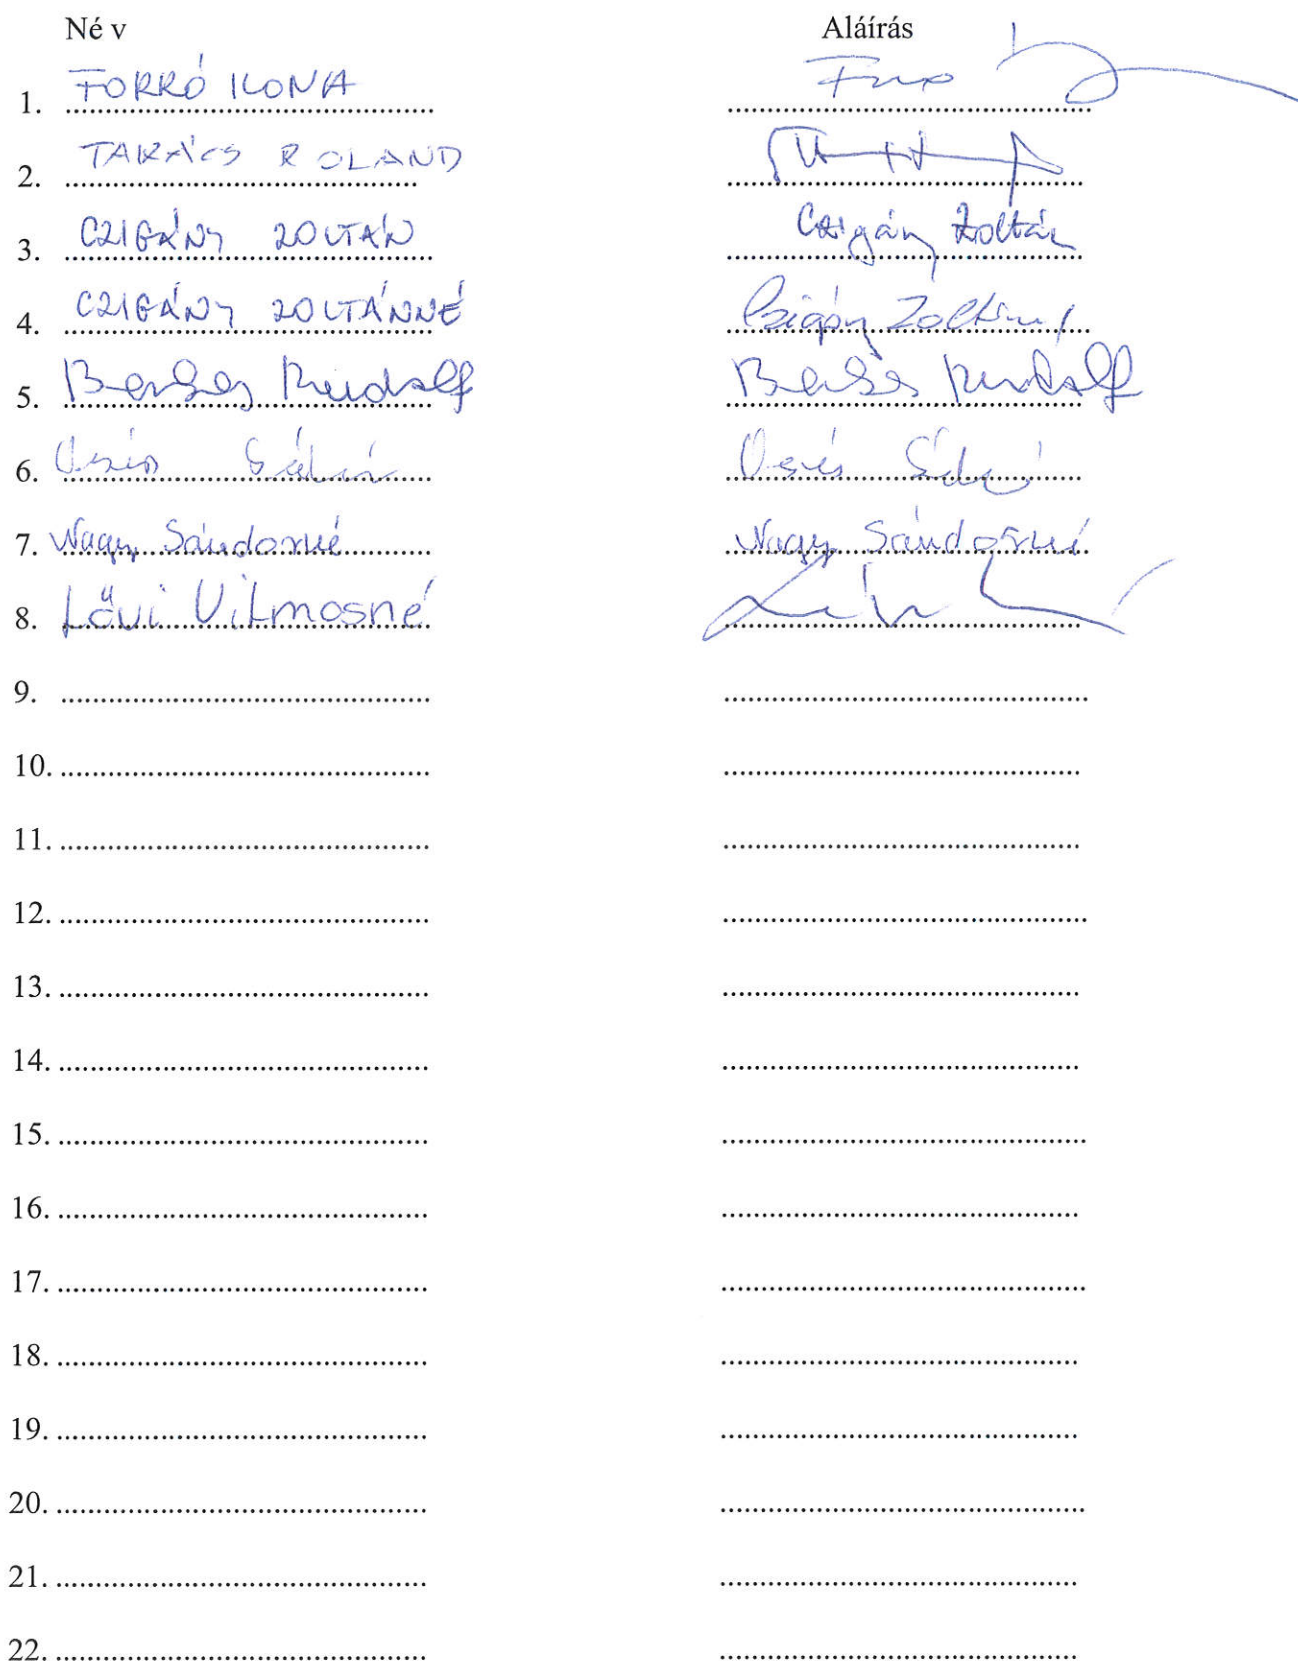 Né v Aláírás
1. FORRÓ ILONA
2. TAKÁCS ROLAND
3. CZIGÁNY ZOLTÁN Czigány Zoltán
4. CZIGÁNY ZOLTÁNNÉ Czigány Zoltánné
5. Rudolf Rudolf
6.
7. Nagy Sándorné Nagy Sándorné
8. Lővi Vilmosné
9.
10.
11.
12.
13.
14.
15.
16.
17.
18.
19.
20.
21.
22.